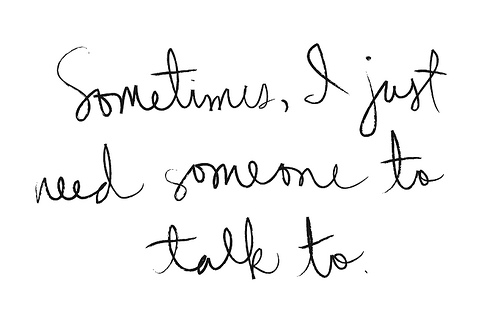 Sometimes, I just
need someone to
talk to.